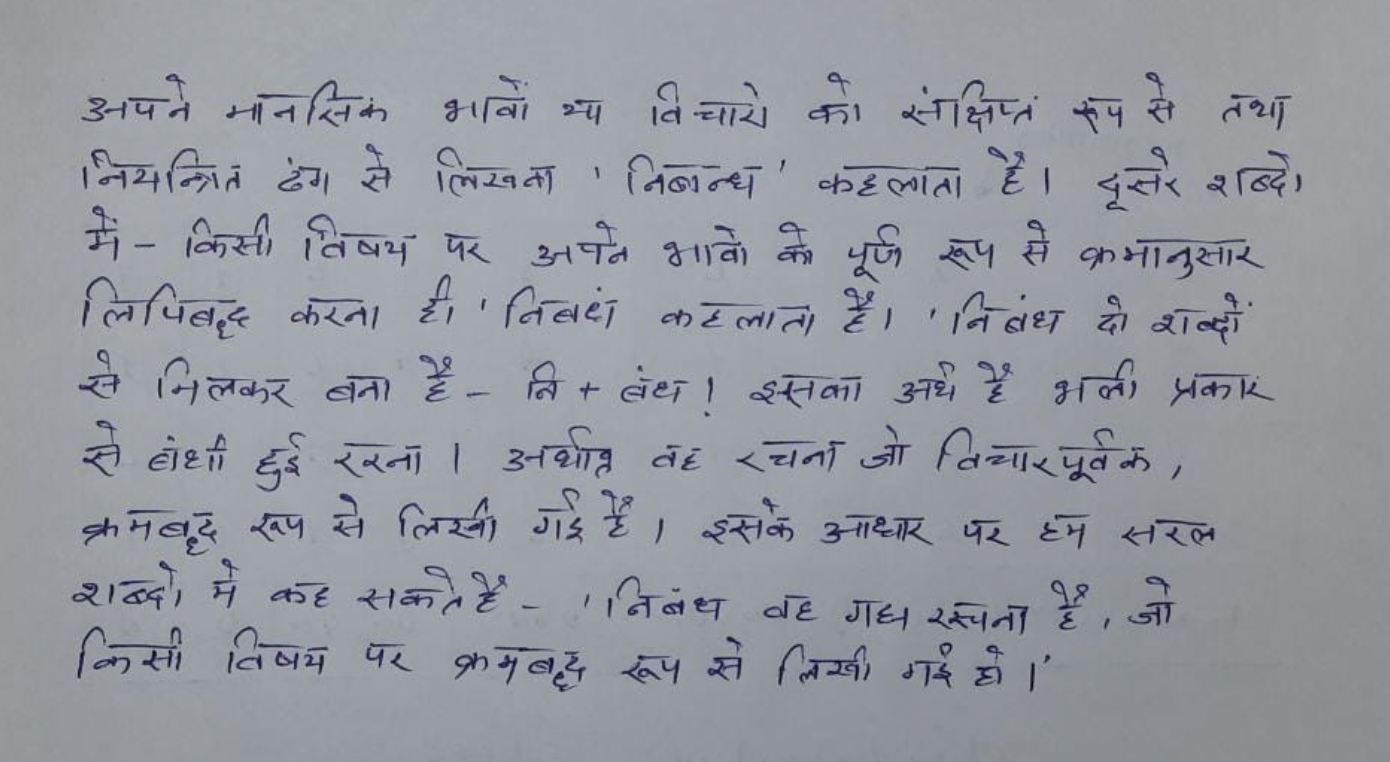 अपने मानसिक भावों या विचारो को संक्षिप्त रूप से तथा
नियन्त्रित ढंग से लिखना 'निबन्ध' कहलाता है। दूसरे शब्दो
में - किसी विषय पर अपने भावो को पूर्ण रूप से क्रमानुसार
लिपिबद्ध करना ही 'निबधं कहलाता है। 'निबंध दो शब्दों
से मिलकर बना है - नि + बंध! इसका अर्थ है भली प्रकार
से बंधी हुई रचना। अर्थात्र वह रचना जो विचारपूर्वक,
क्रमबद्ध रूप से लिखी गई है। इसके आधार पर हम सरल
शब्दो में कह सकते है - 'निबंध वह गद्य रचना है, जो
किसी विषय पर क्रमबद्ध रूप से लिखी गई हो।'